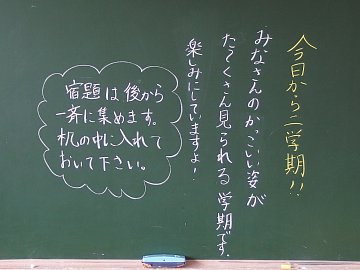 今日から二学期!!
みなさんのかっこいい姿が
たくさん見られる学期です。
楽しみにしていますよ!
宿題は後から
一斉に集めます。
机の中に入れて
おいて下さい。